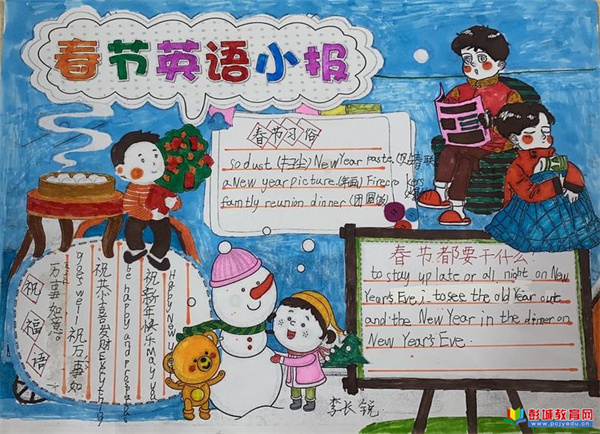 春节英语小报
春节习俗
so dust (扫尘) New Year paste
a New year picture. (年画) Firecrackers
famtly reunion dinner (团圆饭)
春节都要干什么?
to stay up late or all night on New
Year's Eve, i to see the old Year out
and the New Year in the dinner on
New Year's Eve.
祝福语
Happy New
祝新年快乐 May you
be happy and prosperous
祝恭喜发财 Everything
goes well 祝万事如
万事如意。
李长锐
彭城教育网
www.pcjyedu.cn